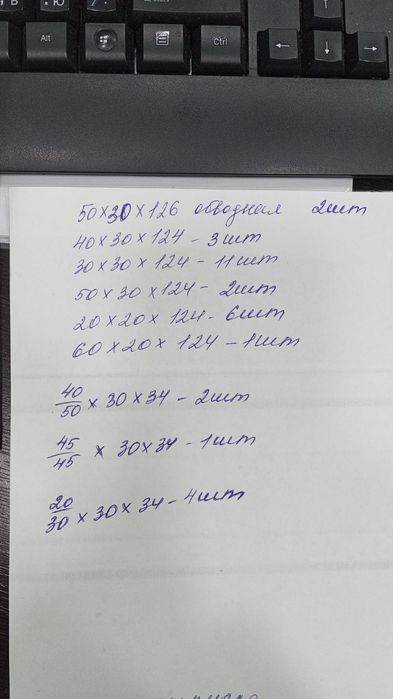 Alt
Ctrl
50×30×126 обводная 2шт
40×30×124 - 3шт
30×30×124 - 11шт
50×30×124 - 2шт
20×20×124 - 6шт
60×20×124 - 1шт
40/50 × 30×34 - 2шт
45/45 × 30×34 - 1шт
20/30 × 30×34 - 4шт